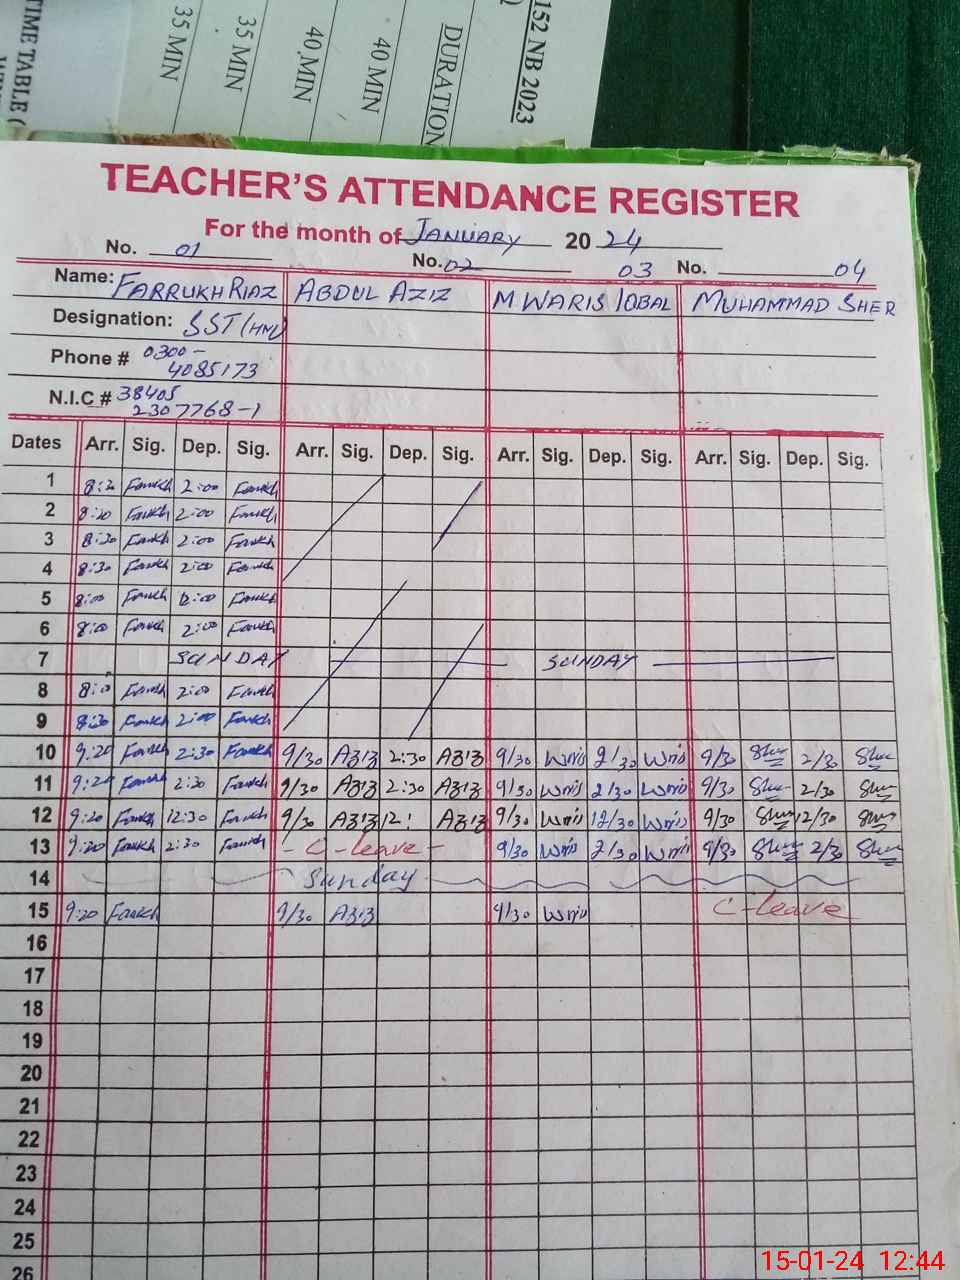 152 NB 2023
DURATION
40 MIN
40 MIN
35 MIN
35 MIN
TIME TABLE (
TEACHER'S ATTENDANCE REGISTER
For the month of JANUARY 2024
No. 01 No. 02 03 No. 04
Name: FARRUKH RIAZ ABDUL AZIZ M WARIS IQBAL MUHAMMAD SHER
Designation: SST (HM)
Phone # 0300-
4085173
N.I.C # 38405
2307768-1
Dates Arr. Sig. Dep. Sig. Arr. Sig. Dep. Sig. Arr. Sig. Dep. Sig. Arr. Sig. Dep. Sig.
1 8:30 Farrukh 2:00 Farrukh
2 8:30 Farrukh 2:00 Farrukh
3 8:30 Farrukh 2:00 Farrukh
4 8:30 Farrukh 2:00 Farrukh
5 8:00 Farrukh 12:00 Farrukh
6 8:00 Farrukh 2:00 Farrukh
7 SUNDAY SUNDAY
8 Farrukh 2:00 Farrukh
9 8:30 Farrukh 2:00 Farrukh
10 9:20 Farrukh 2:30 Farrukh 9/30 Aziz 2:30 Aziz 9/30 Waris 2/30 Waris 9/30 Sher 2/30 Sher
11 9:20 Farrukh 2:30 Farrukh 9/30 Aziz 2:30 Aziz 9/30 Waris 2/30 Waris 9/30 Sher 2/30 Sher
12 9:20 Farrukh 12:30 Farrukh 9/30 Aziz 12: Aziz 9/30 Waris 12/30 Waris 9/30 Sher 12/30 Sher
13 9:20 Farrukh 2:30 Farrukh - C-leave - 9/30 Waris 2/30 Waris 9/30 Sher 2/30 Sher
14 Sunday
15 9:20 Farrukh 9/30 Aziz 9/30 Waris C-leave
16
17
18
19
20
21
22
23
24
25
26
15-01-24 12:44